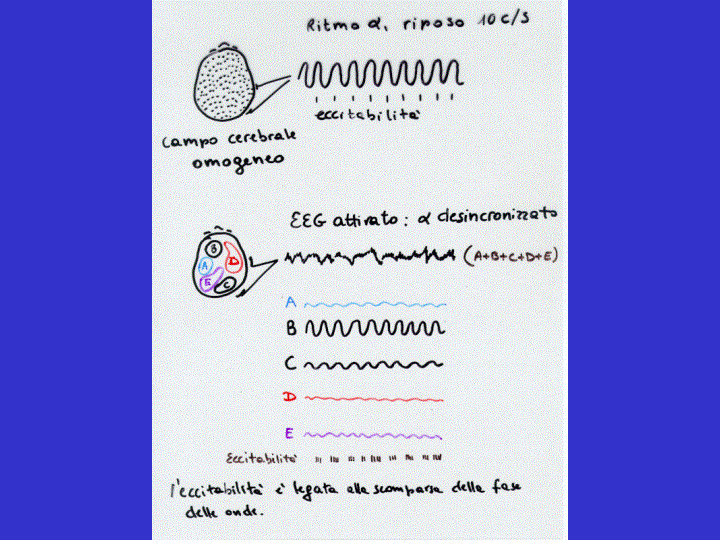 Ritmo α, riposo 10 c/s
eccitabilità
Campo cerebrale
omogeneo
EEG attivato: α desincronizzato
B
D
A
E
C
(A+B+C+D+E)
A
B
C
D
E
Eccitabilità
l'eccitabilità è legata alla scomparsa della fase
delle onde.